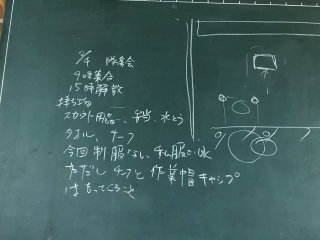 9時集合
15時解散
持ち物
スカウト用品、弁当、水とう
タオル、チーフ
今回制服なし 私服でOK
ただしチーフと作業帽キャップ
はもってくること